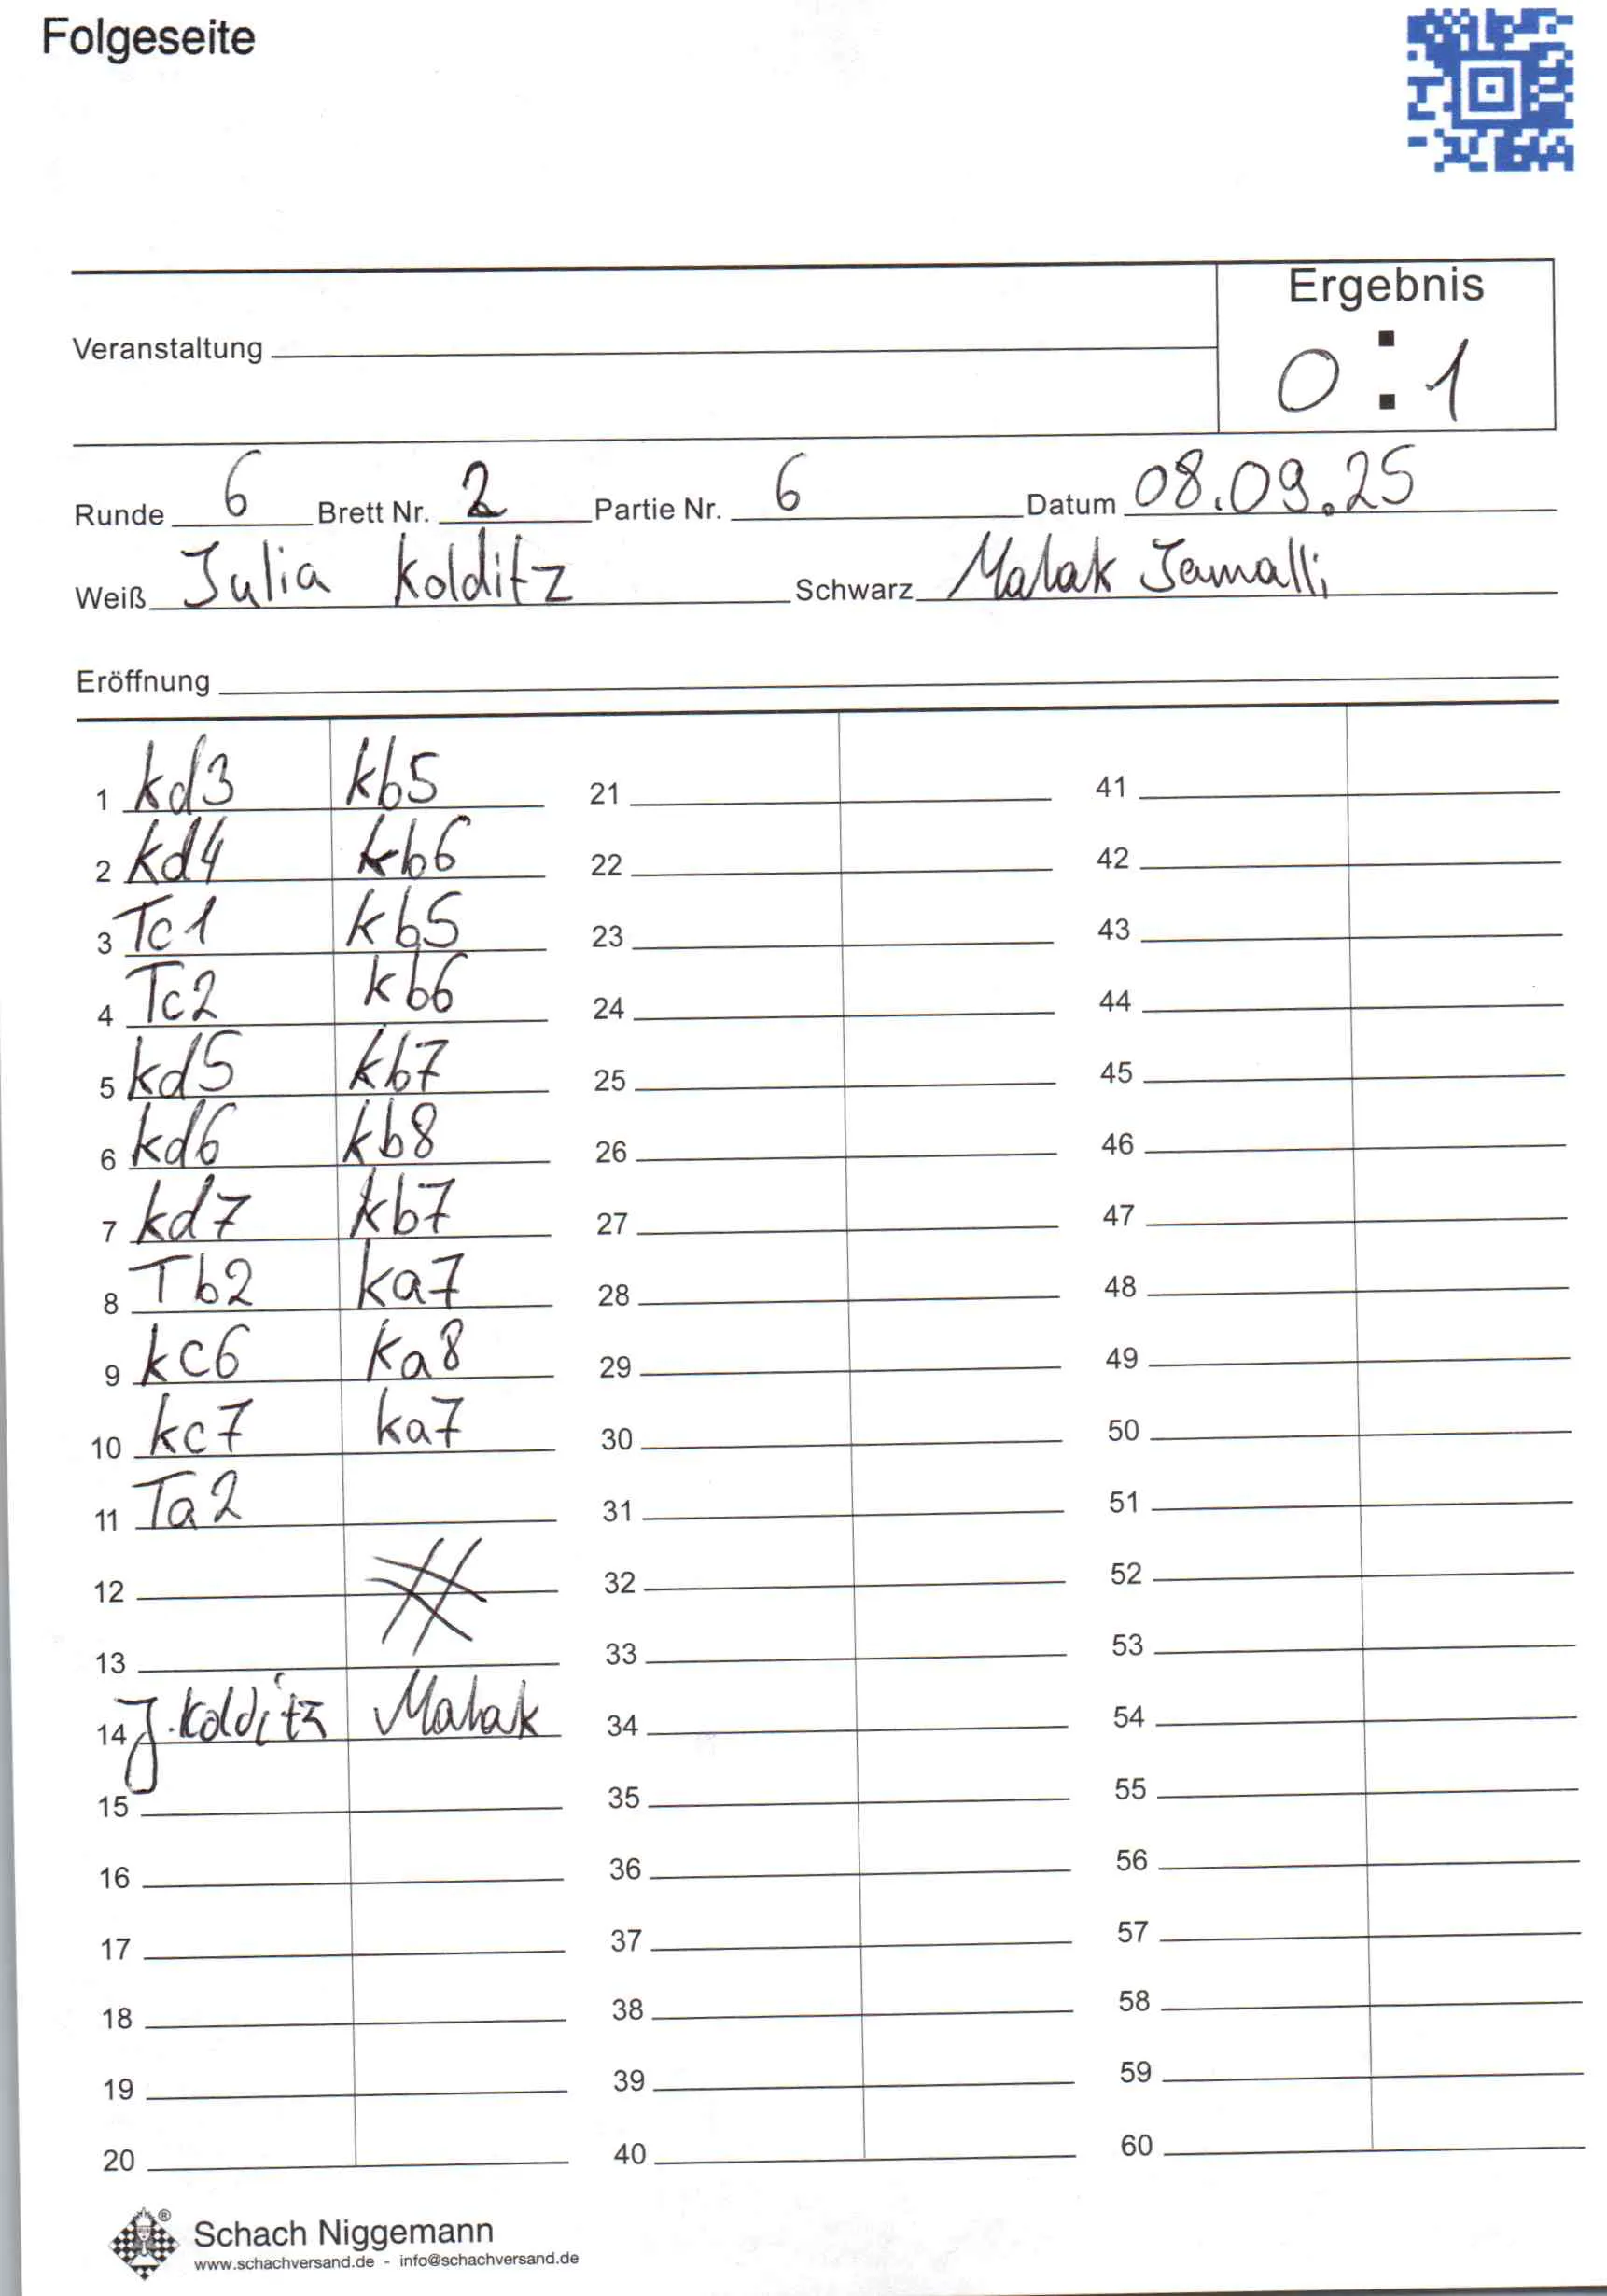 Folgeseite
Ergebnis
Veranstaltung
0 : 1
Runde 6 Brett Nr. 2 Partie Nr. 6 Datum 08.09.25
Weiß Julia Kolditz Schwarz Malak Jamalli
Eröffnung
1 kd3 kb5 21 41
2 kd4 kb6 22 42
3 Tc1 kb5 23 43
4 Tc2 kb6 24 44
5 kd5 kb7 25 45
6 kd6 kb8 26 46
7 kd7 kb7 27 47
8 Tb2 ka7 28 48
9 kc6 ka8 29 49
10 kc7 ka7 30 50
11 Ta2 31 51
12 # 32 52
13 33 53
14 J.Kolditz Malak 34 54
15 35 55
16 36 56
17 37 57
18 38 58
19 39 59
20 40 60
® Schach Niggemann
www.schachversand.de - info@schachversand.de